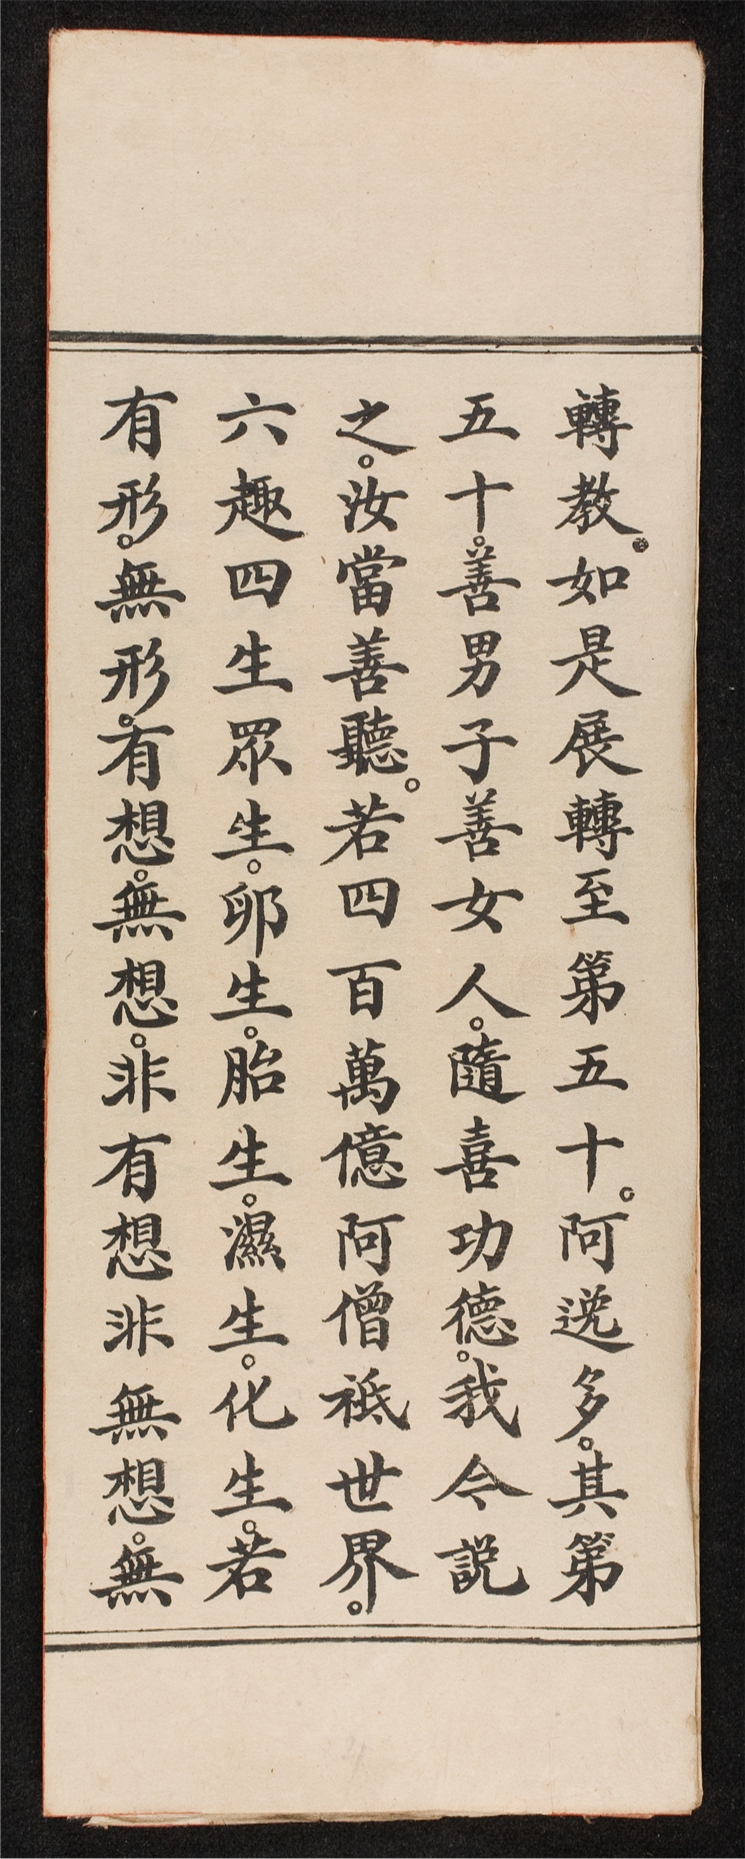 轉教。如是展轉至第五十。阿逸多。其第
五十。善男子善女人。隨喜功德。我今説
之。汝當善聽。若四百萬億阿僧祇世界。
六趣四生眾生。卵生。胎生。濕生。化生。若
有形。無形。有想。無想。非有想非無想。無